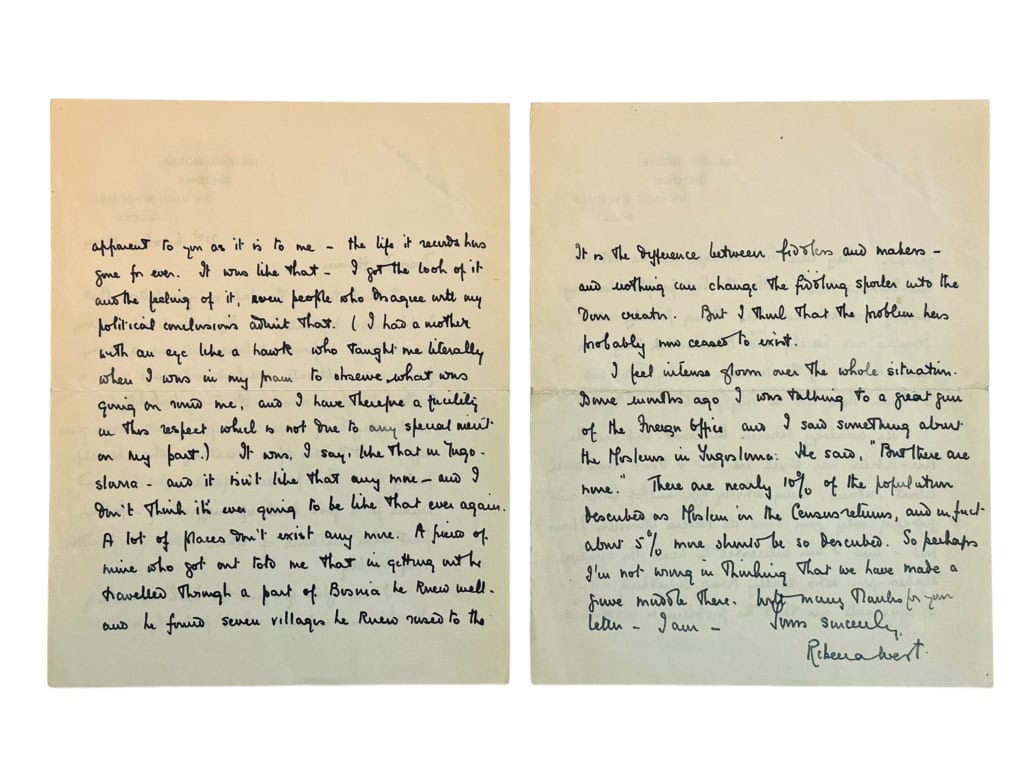 apparent to you as it is to me – the life it records has
gone for ever. It was like that – I got the look of it
and the feeling of it, even people who disagree with my
political conclusions admit that. (I had a mother
with an eye like a hawk who taught me literally
when I was in my pram to observe what was
going on round me, and I have therefore a facility
in this respect which is not due to any special merit
on my part.) It was, I say, like that in Yugo-
slavia – and it isn't like that any more – and I
don't think it's ever going to be like that ever again.
A lot of places don't exist any more. A friend of
mine who got out told me that in getting out he
travelled through a part of Bosnia he knew well –
and he found seven villages he knew rased to the
It is the difference between fiddlers and makers –
and nothing can change the fiddling spoiler into the
born creator. But I think that the problem has
probably now ceased to exist.
I feel intense gloom over the whole situation.
Some months ago I was talking to a great gun
of the Foreign Office and I said something about
the Moslems in Yugoslavia. He said, "But there are
none." There are nearly 10% of the population
described as Moslem in the Census returns, and in fact
about 5% more should be so described. So perhaps
I'm not wrong in thinking that we have made a
grave muddle there. With many thanks for your
letter – I am – Yours sincerely,
Rebecca West.